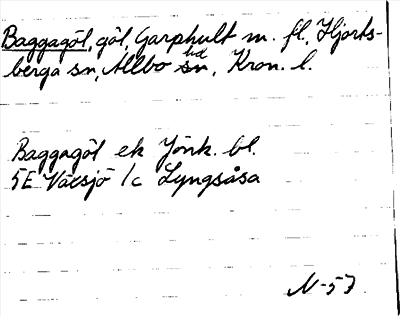 Baggagöl, göl, Garphult m. fl., Hjorts-
berga sn, Allbo hd, Kron. l.
Baggagöl ek Jönk. bl.
5E Växsjö 1c Lyngsåsa
N-57